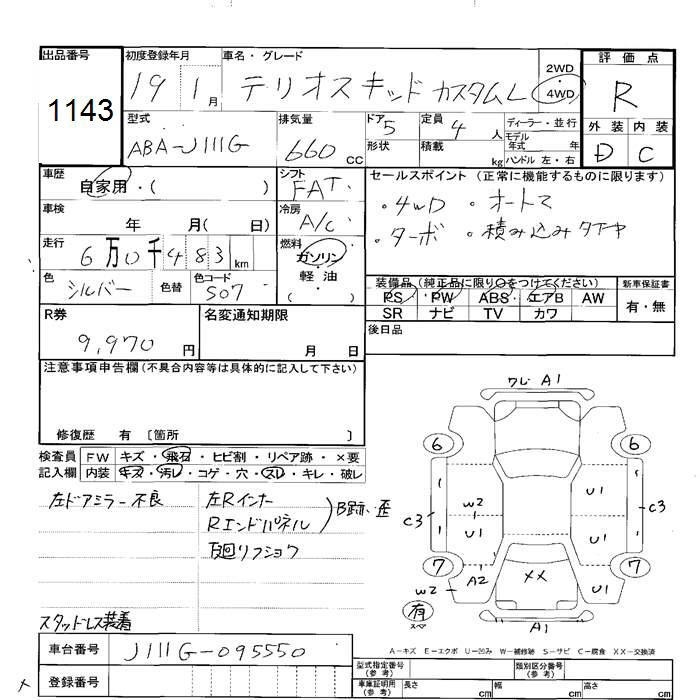 出品番号
1143
初度登録年月
19 1月
車名・グレード
テリオスキッド カスタムL
2WD
・
4WD
評価点
R
型式
ABA-J111G
排気量
660 CC
ドア 5
形状
定員 4 人
積載 kg
ディーラー・並行
モデル
年式 年
ハンドル 左・右
外装 内装
D C
車歴
自家用・( )
シフト
FAT
セールスポイント (正常に機能するものに限ります)
・4WD ・オートマ
・ターボ ・積み込みタイヤ
車検
年 月( 日)
冷房
A/C
走行
6万0千483km
燃料
ガソリン
・
軽油
( )
色
シルバー
色替
色コード
S07
装備品(純正品に限り○をつけてください)
PS PW ABS エアB AW
SR ナビ TV カワ
新車保証書
有・無
R券
9,970 円
名変通知期限
月 日
後日品
注意事項申告欄(不具合内容等は具体的に記入して下さい)
修復歴 有 〔箇所 〕
検査員
記入欄
FW キズ・飛石・ヒビ割・リペア跡・×要
内装 キズ・汚レ・コゲ・穴・スレ・キレ・破レ
左ドアミラー不良
左Rインナー
Rエンドパネル
B跡、歪
下廻リフショク
スタッドレス装着
ワレ A1
6 6
W2 U1
C3 C3
U1 U1
7 7
A2 XX U1
W2
有
スペア
A1
A-キズ E-エクボ U-凹み W-補修跡 S-サビ C-腐食 XX-交換済
車台番号
J111G-095550
登録番号
型式指定番号
(参考)
類別区分番号
(参考)
車庫証明用
(参考)
長さ cm
幅 cm
高さ cm